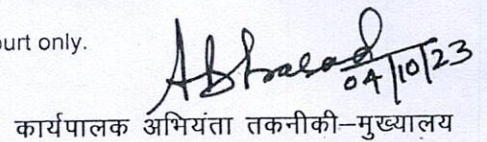 urt only.
04/10/23
कार्यपालक अभियंता तकनीकी–मुख्यालय